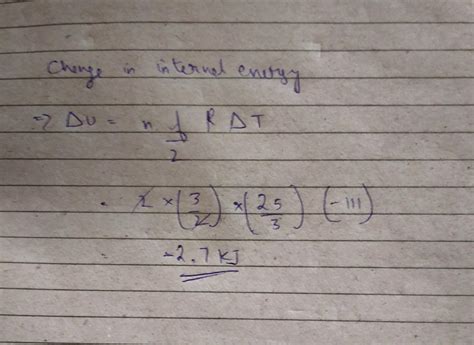 Change in internal energy
=> ΔU = n f/2 R ΔT
. 2 × (3/2) × (25/3) (-111)
= -2.7 KJ